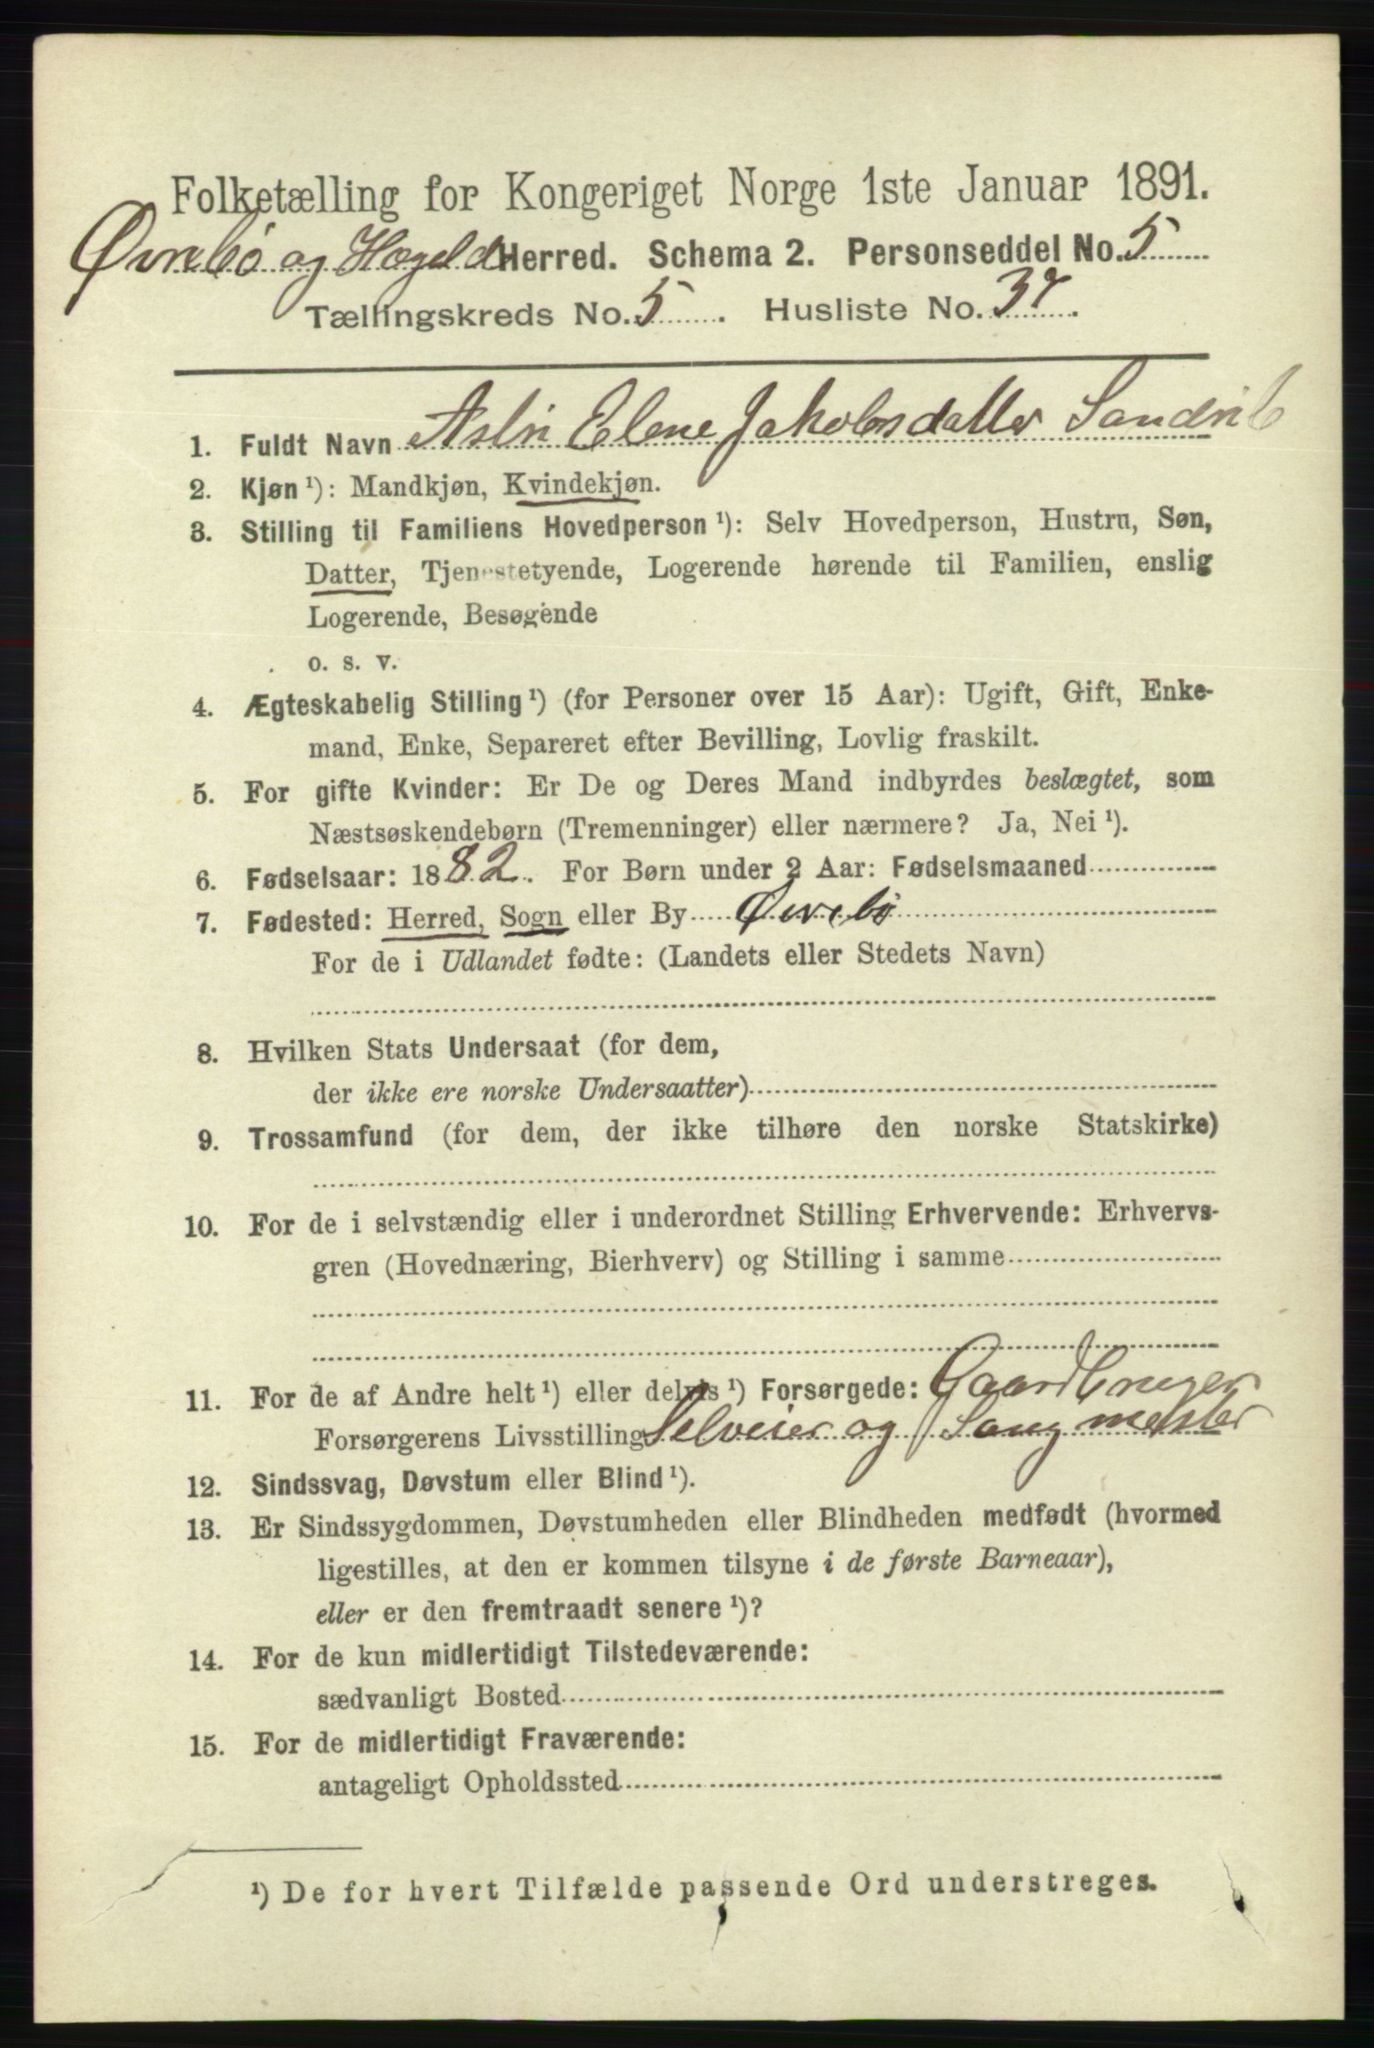 Folketælling for Kongeriget Norge 1ste Januar 1891.
Øvrebö og Hægeld Herred. Schema 2. Personseddel No. 5
Tællingskreds No. 5. Husliste No. 37.
1. Fuldt Navn Aslri Elene Jakobsdatter
2. Kjøn ¹): Mandkjøn, Kvindekjøn.
3. Stilling til Familiens Hovedperson ¹): Selv Hovedperson, Hustru, Søn,
Datter, Tjenestetyende, Logerende hørende til Familien, enslig
Logerende, Besøgende
o. s. v.
4. Ægteskabelig Stilling ¹) (for Personer over 15 Aar): Ugift, Gift, Enke-
mand, Enke, Separeret efter Bevilling, Lovlig fraskilt.
5. For gifte Kvinder: Er De og Deres Mand indbyrdes beslægtet, som
Næstsøskendebørn (Tremenninger) eller nærmere? Ja, Nei ¹).
6. Fødselsaar: 1882. For Børn under 2 Aar: Fødselsmaaned
7. Fødested: Herred, Sogn eller By Øvrebö
For de i Udlandet fødte: (Landets eller Stedets Navn)
8. Hvilken Stats Undersaat (for dem,
der ikke ere norske Undersaatter)
9. Trossamfund (for dem, der ikke tilhøre den norske Statskirke)
10. For de i selvstændig eller i underordnet Stilling Erhvervende: Erhvervs-
gren (Hovednæring, Bierhverv) og Stilling i samme
11. For de af Andre helt ¹) eller delvis ¹) Forsørgede: Gaardbruger
Forsørgerens Livsstilling Selveier og Sangmester
12. Sindssvag, Døvstum eller Blind ¹).
13. Er Sindssygdommen, Døvstumheden eller Blindheden medfødt (hvormed
ligestilles, at den er kommen tilsyne i de første Barneaar),
eller er den fremtraadt senere ¹)?
14. For de kun midlertidigt Tilstedeværende:
sædvanligt Bosted
15. For de midlertidigt Fraværende:
antageligt Opholdssted
¹) De for hvert Tilfælde passende Ord understreges.